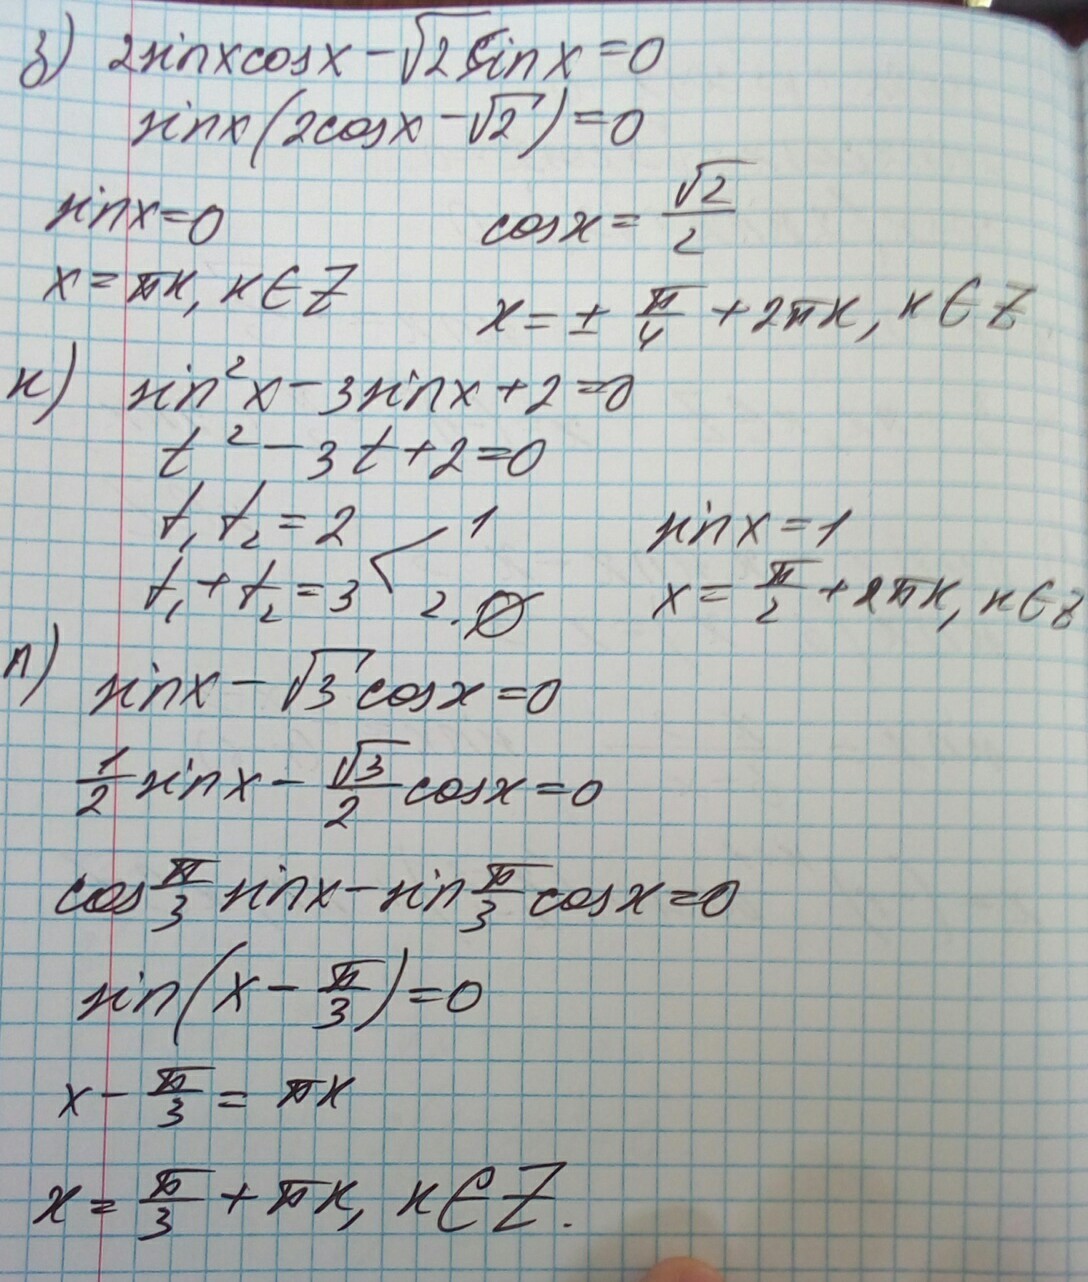 з) 2sinxcosx - √2 sinx = 0
sinx(2cosx - √2) = 0
sinx = 0   cosx = √2/2
x = πк, к ∈ Z   x = ± π/4 + 2πк, к ∈ Z
к) sin²x - 3sinx + 2 = 0
t² - 3t + 2 = 0
t₁ t₂ = 2   1   sinx = 1
t₁ + t₂ = 3   2. ∅   x = π/2 + 2πк, к ∈ Z
л) sinx - √3 cosx = 0
1/2 sinx - √3/2 cosx = 0
cos π/3 sinx - sin π/3 cosx = 0
sin(x - π/3) = 0
x - π/3 = πк
x = π/3 + πк, к ∈ Z.